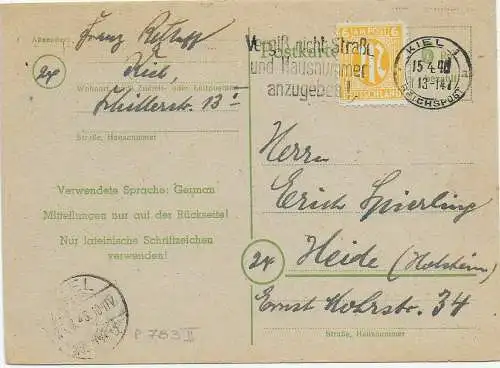 Absender:
Franz
Kiel,
24
Wohnort, auch Zustell- oder Leitpostamt
Schillerstr. 13 I
Straße, Hausnummer
Verwendete Sprache: German
Mitteilungen nur auf der Rückseite!
Nur lateinische Schriftzeichen
verwenden!
KIEL
P 783 II
Postkarte
Vergiß nicht Straße
und Hausnummer
anzugeben!
6 AM POST 6
DEUTSCHLAND
KIEL 1
15.4.46
13-14
REICHSPOST
Herrn
Erich Spierling
24 Heide (Holstein)
Ernst Mohrstr. 34
Straße, Hausnummer